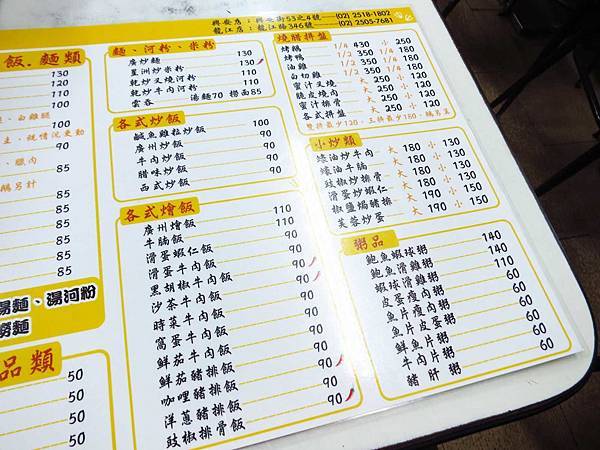 興安店：興安街53之4號——(02) 2518-1802
龍江店：龍江路346號——(02) 2503-7681
飯．麵類
130
120
120
85
85
85
85
85
湯麵、湯河粉
撈麵
品類
50
50
50
50
麵、河粉、米粉
廣炒麵 130
星洲炒米粉 130
乾炒叉燒河粉 110
乾炒牛肉河粉 110
雲吞 湯麵70 撈面85
各式炒飯
鹹魚雞粒炒飯 100
廣州炒飯 100
牛肉炒飯 90
腊味炒飯 90
西式炒飯 90
各式燴飯
廣州燴飯 110
牛腩飯 110
滑蛋蝦仁飯 90
滑蛋牛肉飯 90
黑胡椒牛肉飯 90
沙茶牛肉飯 90
時菜牛肉飯 90
窩蛋牛肉飯 90
鮮茄牛肉飯 90
鮮茄豬排飯 90
咖哩豬排飯 90
洋蔥豬排飯 90
豉椒排骨飯 90
燒腊拼盤
烤鵝 1/4 430 小 250
烤鴨 1/4 350 小 250
油雞 1/2 450 小 250
白切雞 1/2 450 小 250
蜜汁叉燒 大 250
脆皮燒肉 大 250
蜜汁排骨 大 250
各式拼盤 大 250
雙拼最少120、三拼最少180、鵝另算
小炒類
蠔油炒牛肉 大 180 小 130
蠔油牛腩 大 180 小 130
豉椒炒排骨 大 180 小 130
滑蛋炒蝦仁 大 210 小 150
椒鹽焗豬排 大 190 小 150
芙蓉炒蛋 大 190 小 150
粥品
鮑魚蝦球粥 140
鮑魚滑雞粥 140
蝦球滑雞粥 110
皮蛋瘦肉粥 60
魚片瘦肉粥 60
魚片皮蛋粥 60
鮮魚片粥 60
牛肉片粥 60
豬肝粥 60